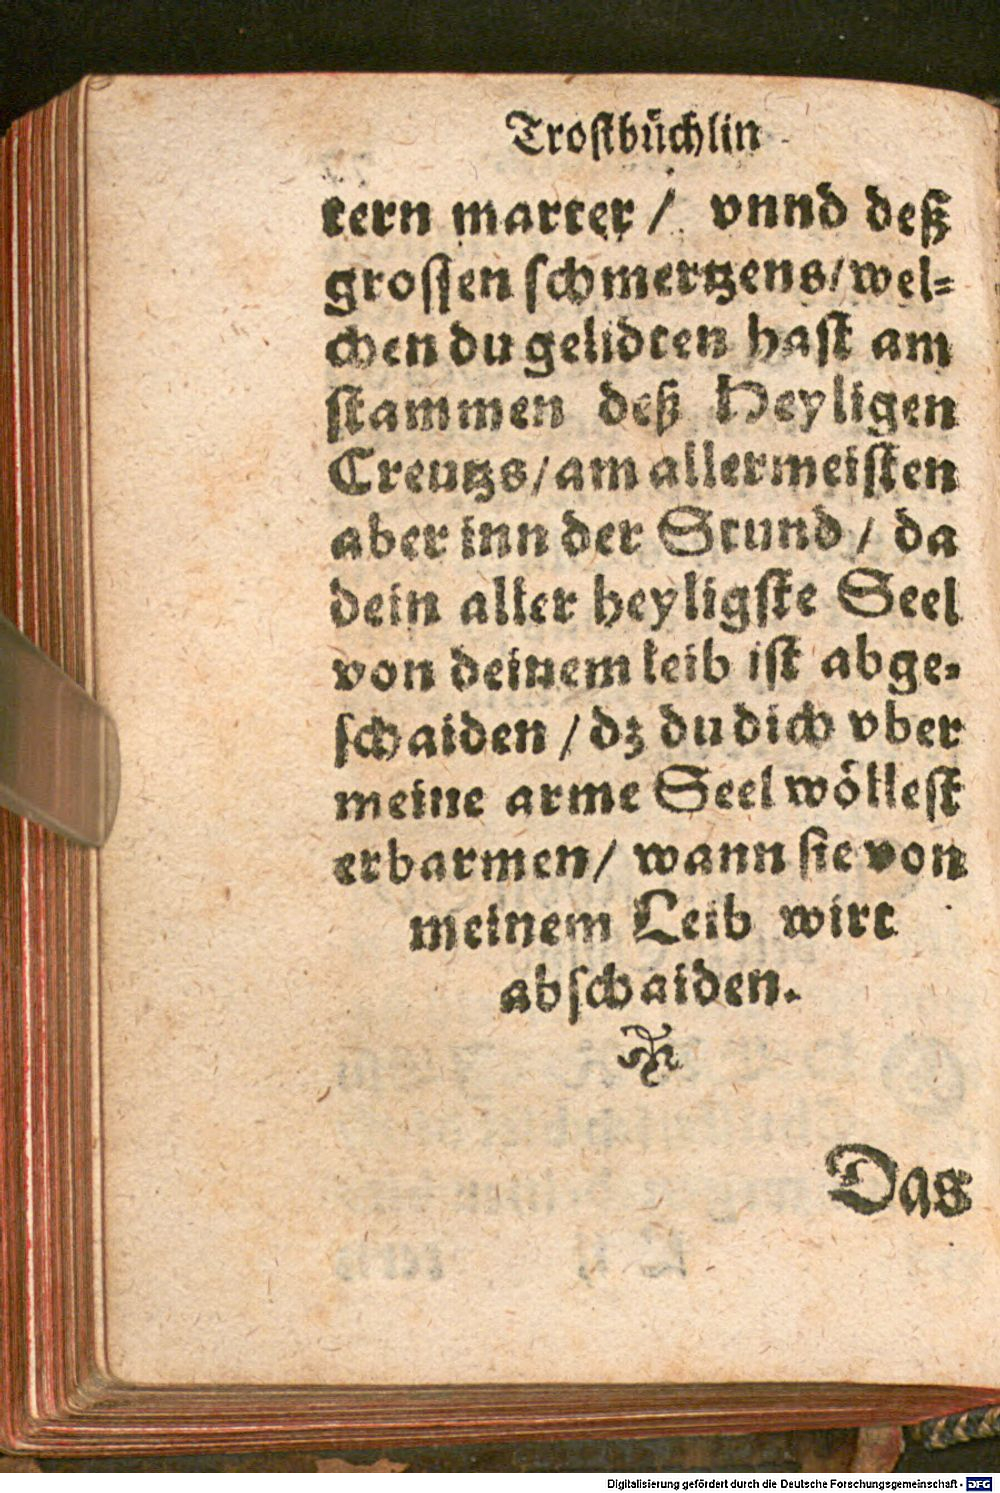 Trostbüchlin
tern marter / vnnd deß
grossen schmertzens / wel=
chen du gelidten hast am
stammen deß Heyligen
Creutzs / am allermeisten
aber inn der Stund / da
dein aller heyligste Seel
von deinem leib ist abge=
schaiden / dz du dich vber
meine arme Seel wöllest
erbarmen / wann sie von
meinem Leib wirt
abschaiden.
Das
Digitalisierung gefördert durch die Deutsche Forschungsgemeinschaft - DFG